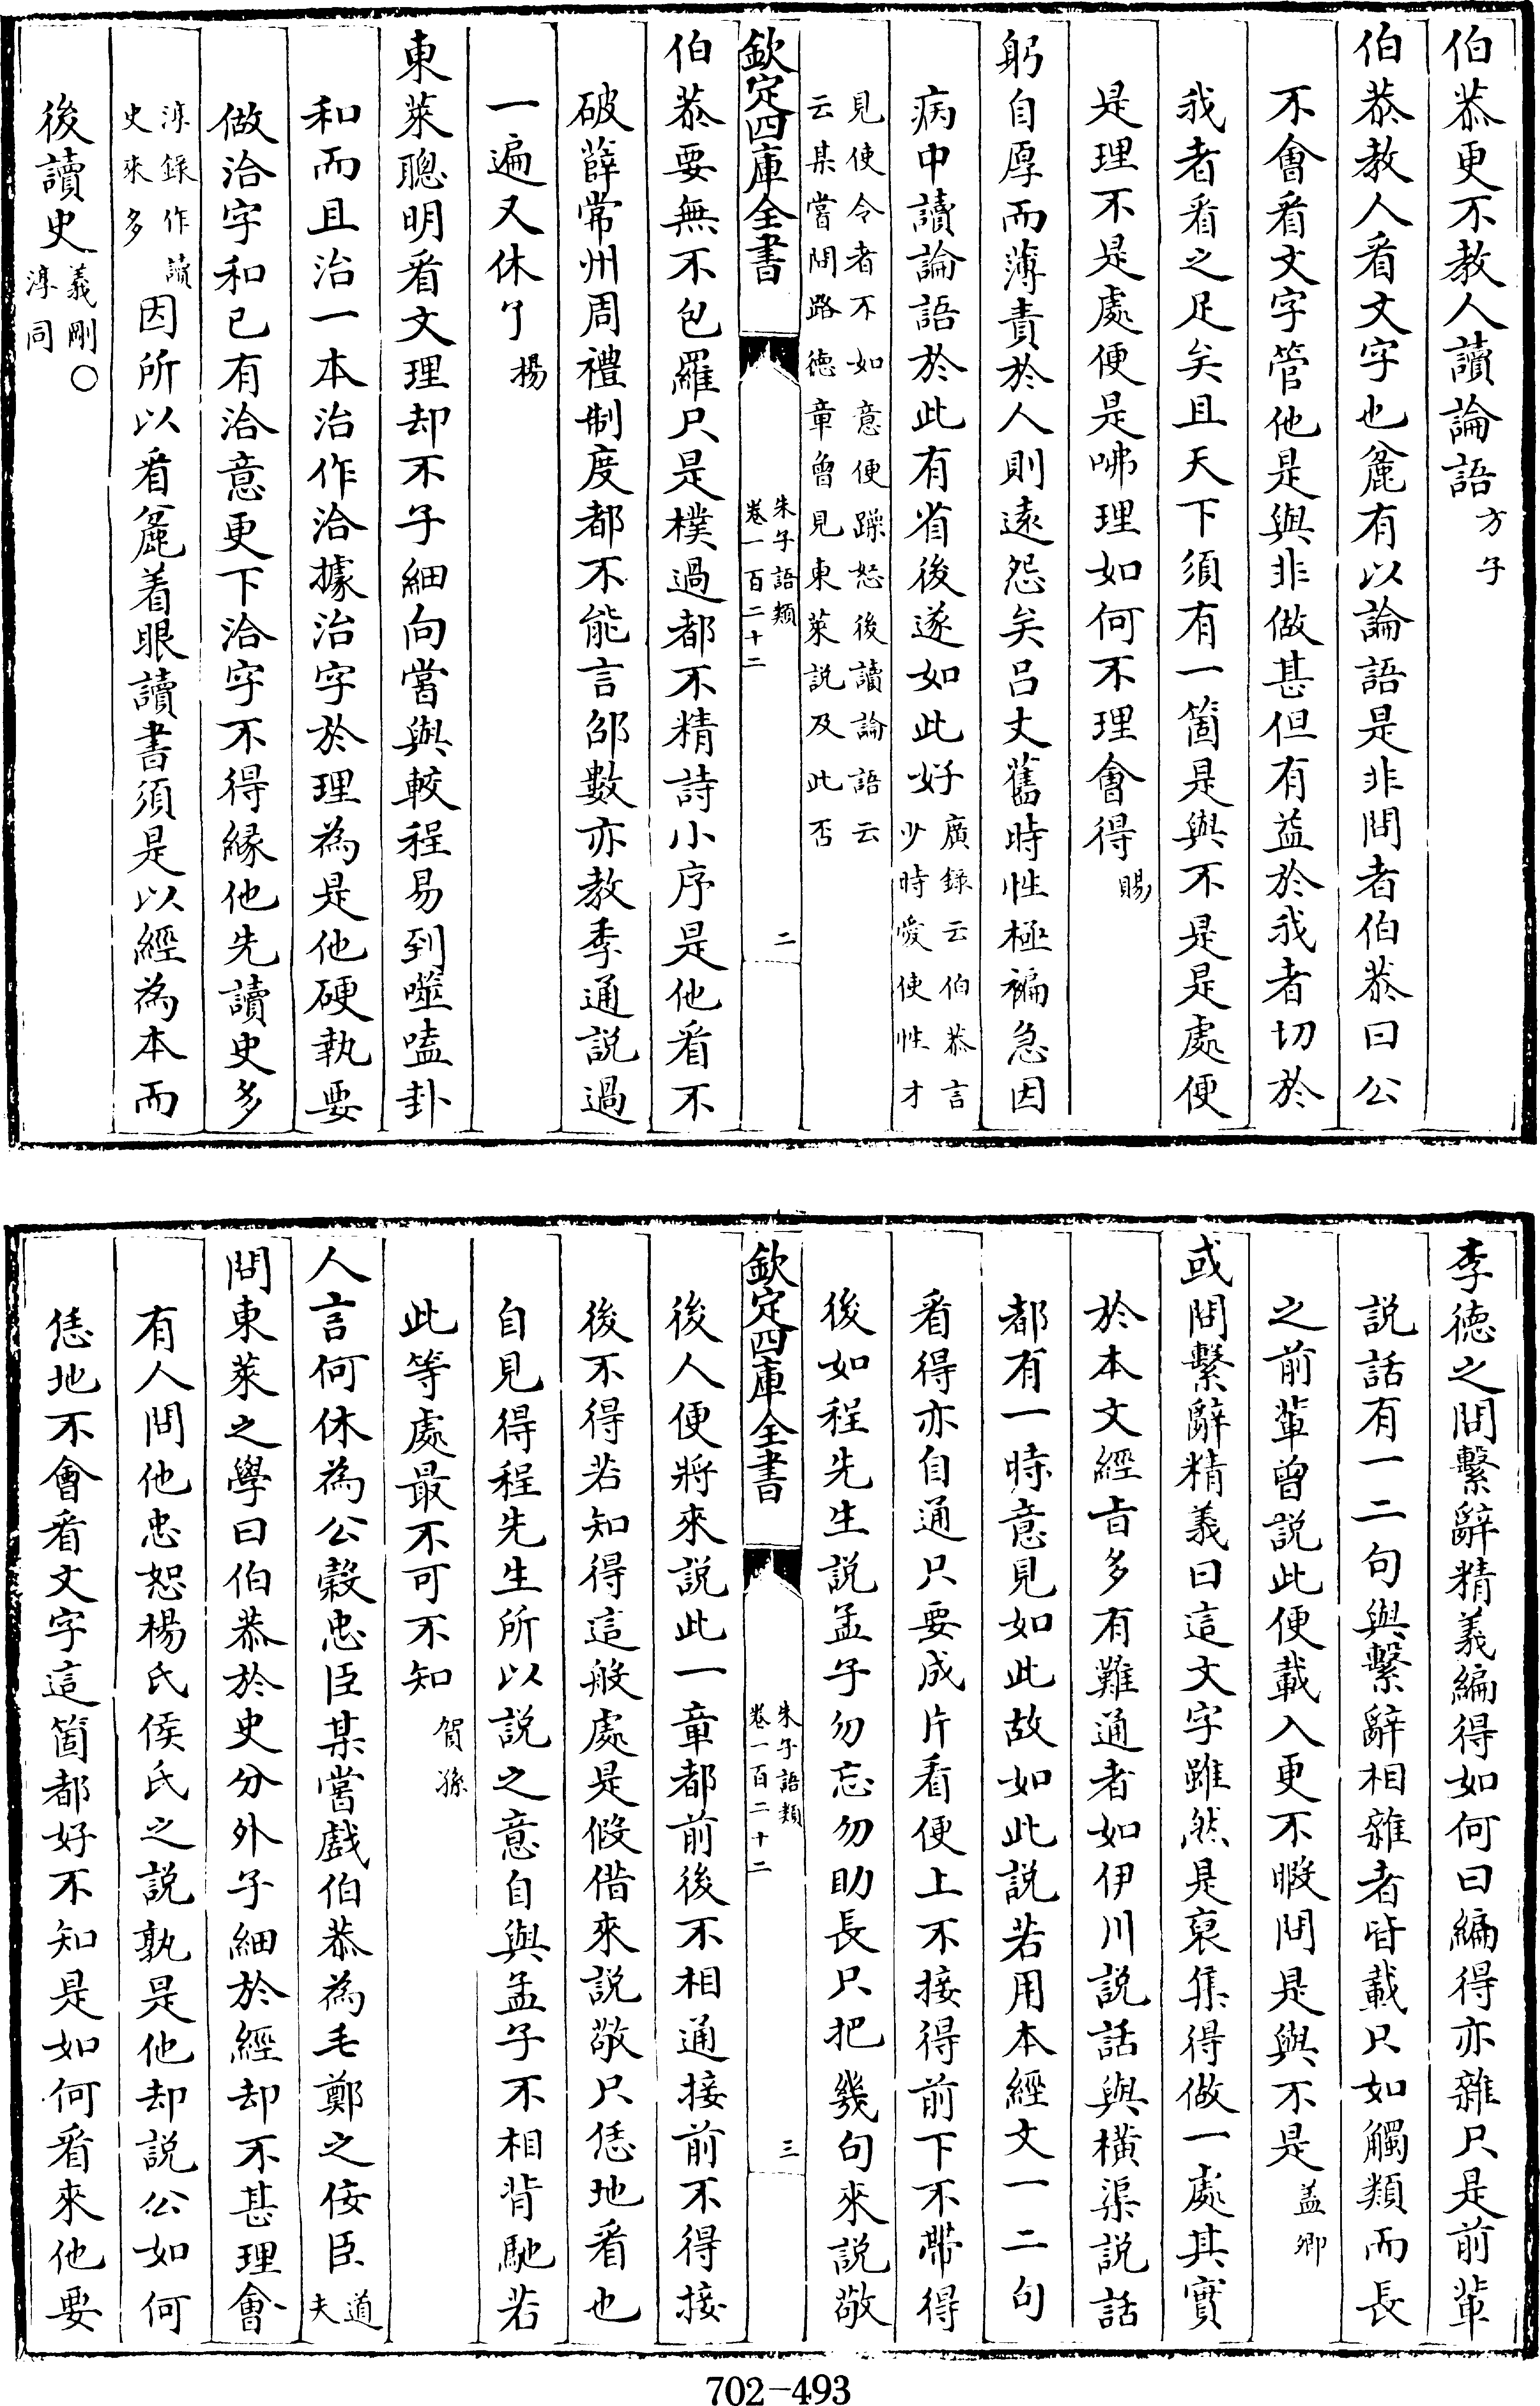 伯恭更不教人讀論語方子
伯恭教人看文字也麄有以論語是非問者伯恭曰公
不會看文字管他是與非做甚但有益於我者切於
我者看之足矣且天下須有一箇是與不是是處便
是理不是處便是咈理如何不理會得賜
躬自厚而薄責於人則遠怨矣呂丈舊時性極褊急因
病中讀論語於此有省後遂如此好廣録云伯恭言少時愛使性才
見使令者不如意便躁怒後讀論語云云某嘗問路德章曾見東萊説及此否
欽定四庫全書 朱子語類卷一百二十二 二
伯恭要無不包羅只是樸過都不精詩小序是他看不
破薛常州周禮制度都不能言邵數亦教季通説過
一遍又休了揚
東萊聰明看文理却不子細向嘗與較程易到噬嗑卦
和而且治一本治作洽據治字於理為是他硬執要
做洽字和已有洽意更下洽字不得緣他先讀史多
淳録作讀史來多因所以看麄着眼讀書須是以經為本而
後讀史義剛○淳同
李德之問繫辭精義編得如何曰編得亦雜只是前輩
説話有一二句與繫辭相雜者皆載只如觸類而長
之前輩曾説此便載入更不暇問是與不是蓋卿
或問繫辭精義曰這文字雖然是裒集得做一處其實
於本文經旨多有難通者如伊川説話與橫渠説話
都有一時意見如此故如此説若用本經文一二句
看得亦自通只要成片看便上不接得前下不帶得
後如程先生説孟子勿忘勿助長只把幾句來説敬
欽定四庫全書 朱子語類卷一百二十二 三
後人便將來説此一章都前後不相通接前不得接
後不得若知得這般處是假借來説敬只恁地看也
自見得程先生所以説之意自與孟子不相背馳若
此等處最不可不知賀孫
人言何休為公穀忠臣某嘗戲伯恭為毛鄭之佞臣道夫
問東萊之學曰伯恭於史分外子細於經却不甚理會
有人問他忠恕楊氏侯氏之説孰是他却説公如何
恁地不會看文字這箇都好不知是如何看來他要
702-493